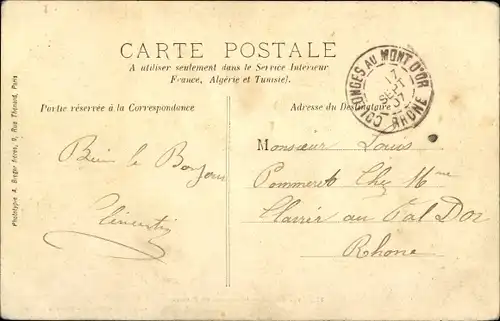 CARTE POSTALE
A utiliser seulement dans le Service Intérieur
France, Algérie et Tunisie).
Partie réservée à la Correspondance
Adresse du Destinataire
COLLONGES AU MONT D'OR
17
SEPT
07
RHONE
Phototypie A. Breger frères, 9, Rue Thénard, Paris
Bien le Bonjour
Monsieur Louis
Pommeret Chez Mme
au Cal D'or
Rhone